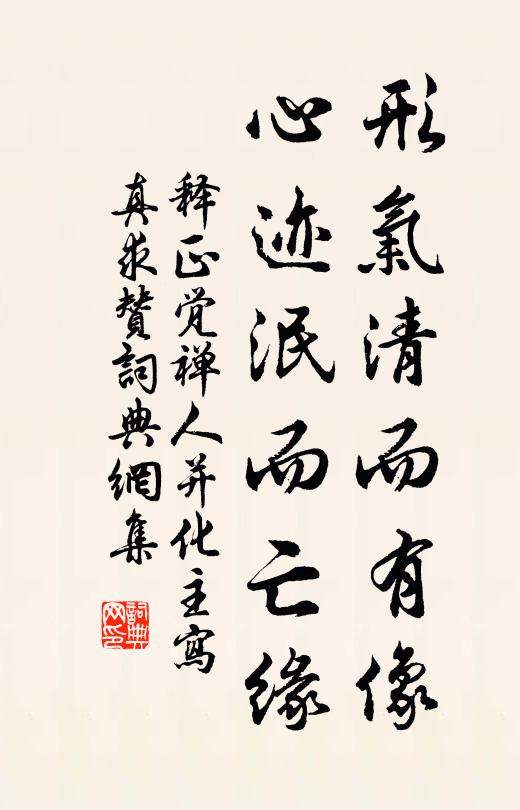 形氣清而有像
心迹泯而亡緣
释正觉禅人并化主寫
真求贊詞典網集
詞典网印